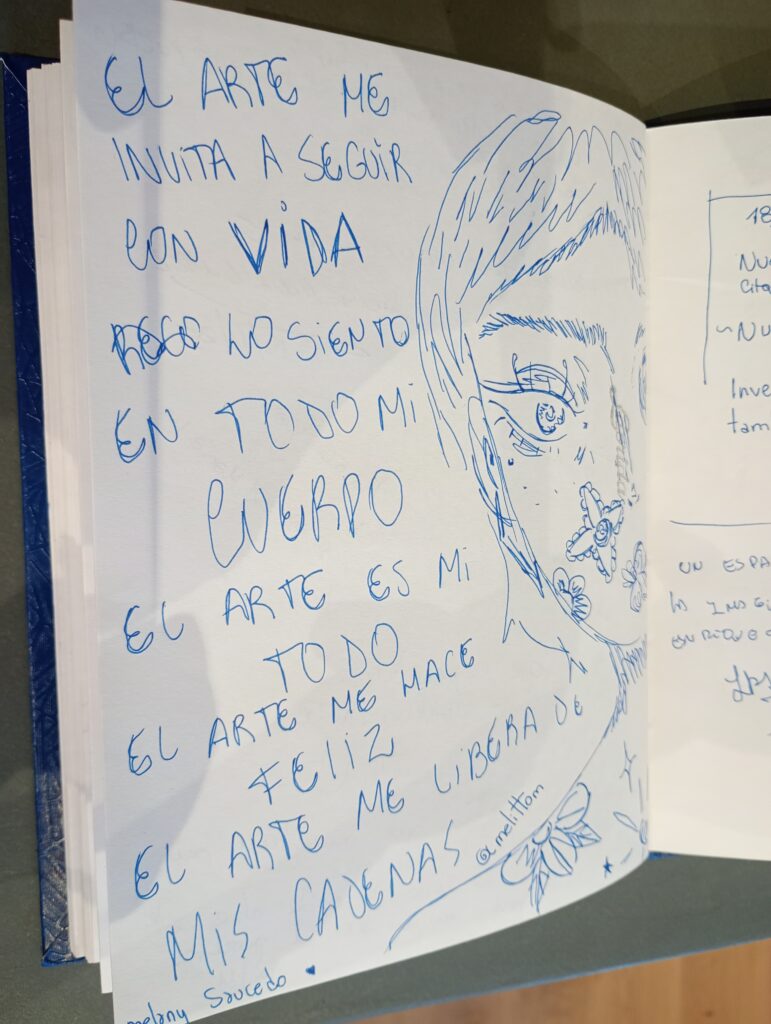 EL ARTE ME
INVITA A SEGUIR
CON VIDA
LO SIENTO
EN TODO MI
CUERPO
EL ARTE ES MI
TODO
EL ARTE ME HACE
FELIZ
EL ARTE ME LIBERA DE
MIS CADENAS
@_melittom
melany Saucedo
18
Nu
Cita
~Nu
Inve
tam
UN ESPA